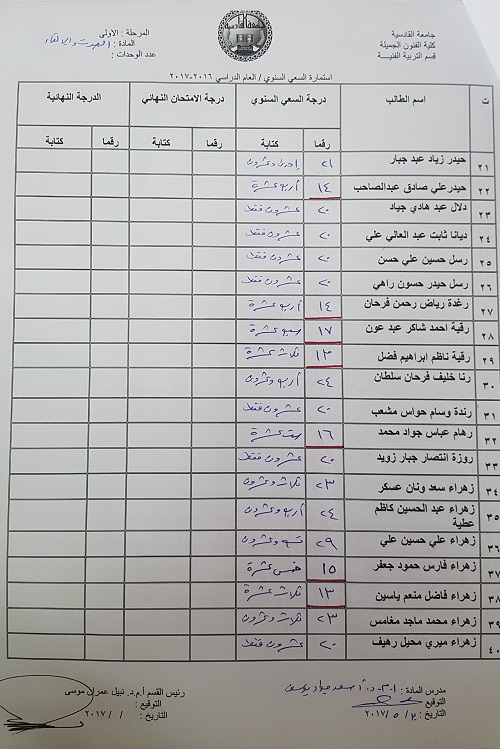 جامعة القادسية
كلية الفنون الجميلة
قسم التربية الفنية
المرحلة : الاولى
المادة : الصوت والالقاء
عدد الوحدات :
استمارة السعي السنوي / العام الدراسي ٢٠١٦-٢٠١٧
ت اسم الطالب درجة السعي السنوي درجة الامتحان النهائي الدرجة النهائية
رقما كتابة رقما كتابة رقما كتابة
٢١ حيدر زياد عبد جبار ٢١ احدى وعشرون
٢٢ حيدرعلي صادق عبدالصاحب ١٤ أربع عشرة
٢٣ دلال عبد هادي جياد ٢٠ عشرون فقط
٢٤ ديانا ثابت عبد العالي علي ٢٠ عشرون فقط
٢٥ رسل حسين علي حسن ٢٠ عشرون فقط
٢٦ رسل حيدر حسون راهي ٢٠ عشرون فقط
٢٧ رغدة رياض رحمن فرحان ١٤ أربع عشرة
٢٨ رقية احمد شاكر عبد عون ١٧ سبع عشرة
٢٩ رقية ناظم ابراهيم فضل ١٣ ثلاث عشرة
٣٠ رنا خليف فرحان سلطان ٢٤ أربع وعشرون
٣١ رندة وسام حواس مشعب ٢٠ عشرون فقط
٣٢ رهام عباس جواد محمد ١٦ ست عشرة
٣٣ روزة انتصار جبار زويد ٢٠ عشرون فقط
٣٤ زهراء سعد ونان عسكر ٢٣ ثلاث وعشرون
٣٥ زهراء عبد الحسين كاظم عطية ٢٤ أربع وعشرون
٣٦ زهراء علي حسين علي ٢٩ تسع وعشرون
٣٧ زهراء فارس حمود جعفر ١٥ خمس عشرة
٣٨ زهراء فاضل منعم ياسين ١٣ ثلاث عشرة
٣٩ زهراء محمد ماجد مغامس ٢٣ ثلاث وعشرون
٤٠ زهراء ميري محيل رهيف ٢٠ عشرون فقط
مدرس المادة : أ.م.د. أسعد
التوقيع :
التاريخ : ٢ / ٥ /٢٠١٧
رئيس القسم أ.م.د. نبيل عمران موسى
التوقيع :
التاريخ : / /٢٠١٧